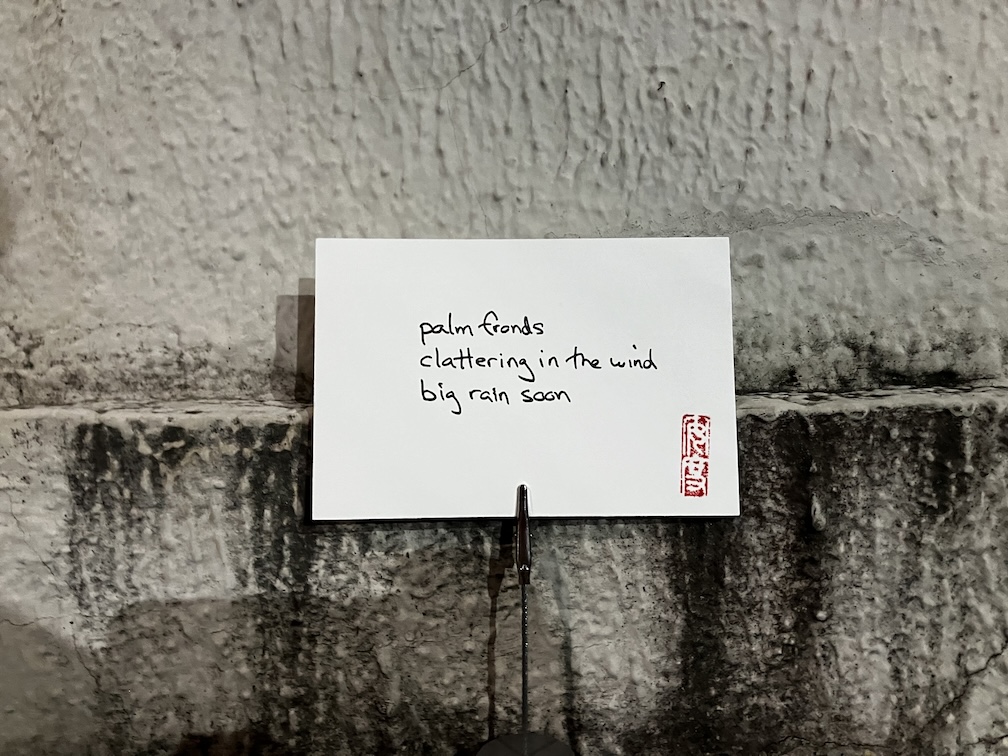 palm fronds
clattering in the wind
big rain soon